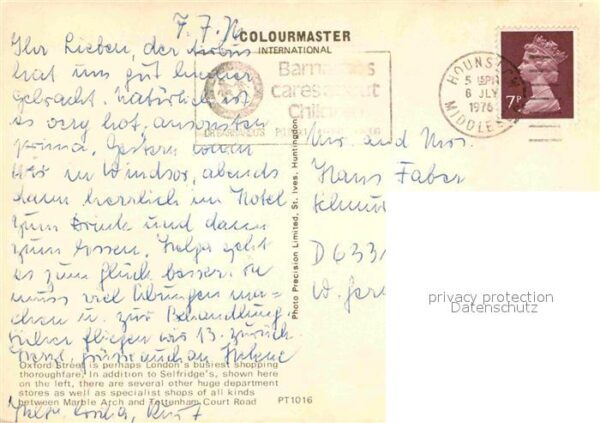 7.7.76
COLOURMASTER
INTERNATIONAL
Ihr Lieben, der Airbus
hat uns gut hierher
gebracht. Natürlich ist
es very hot, ansonsten
prima. Gestern waren
wir in Windsor, abends
dann herrlich im Hotel
zum Drink und dann
zum Essen. Helga geht
es zum Glück besser. Sie
muss viel Übungen ma-
chen u. zur Behandlung.
fliegen wir 13. zurück.
Grüsse auch an Helene
Oxford Street is perhaps London's busiest shopping
thoroughfare. In addition to Selfridge's, shown here
on the left, there are several other huge department
stores as well as specialist shops of all kinds
between Marble Arch and Tottenham Court Road
PT1016
Photo Precision Limited, St. Ives, Huntingdon
Barnardo's
cares about
Children
DR BARNARDO'S
HOUNSLOW
6 JLY
1976
MIDDLESEX
7P
Mr. and Mrs.
Hans Faber
D 633
W. Ger
privacy protection
Datenschutz